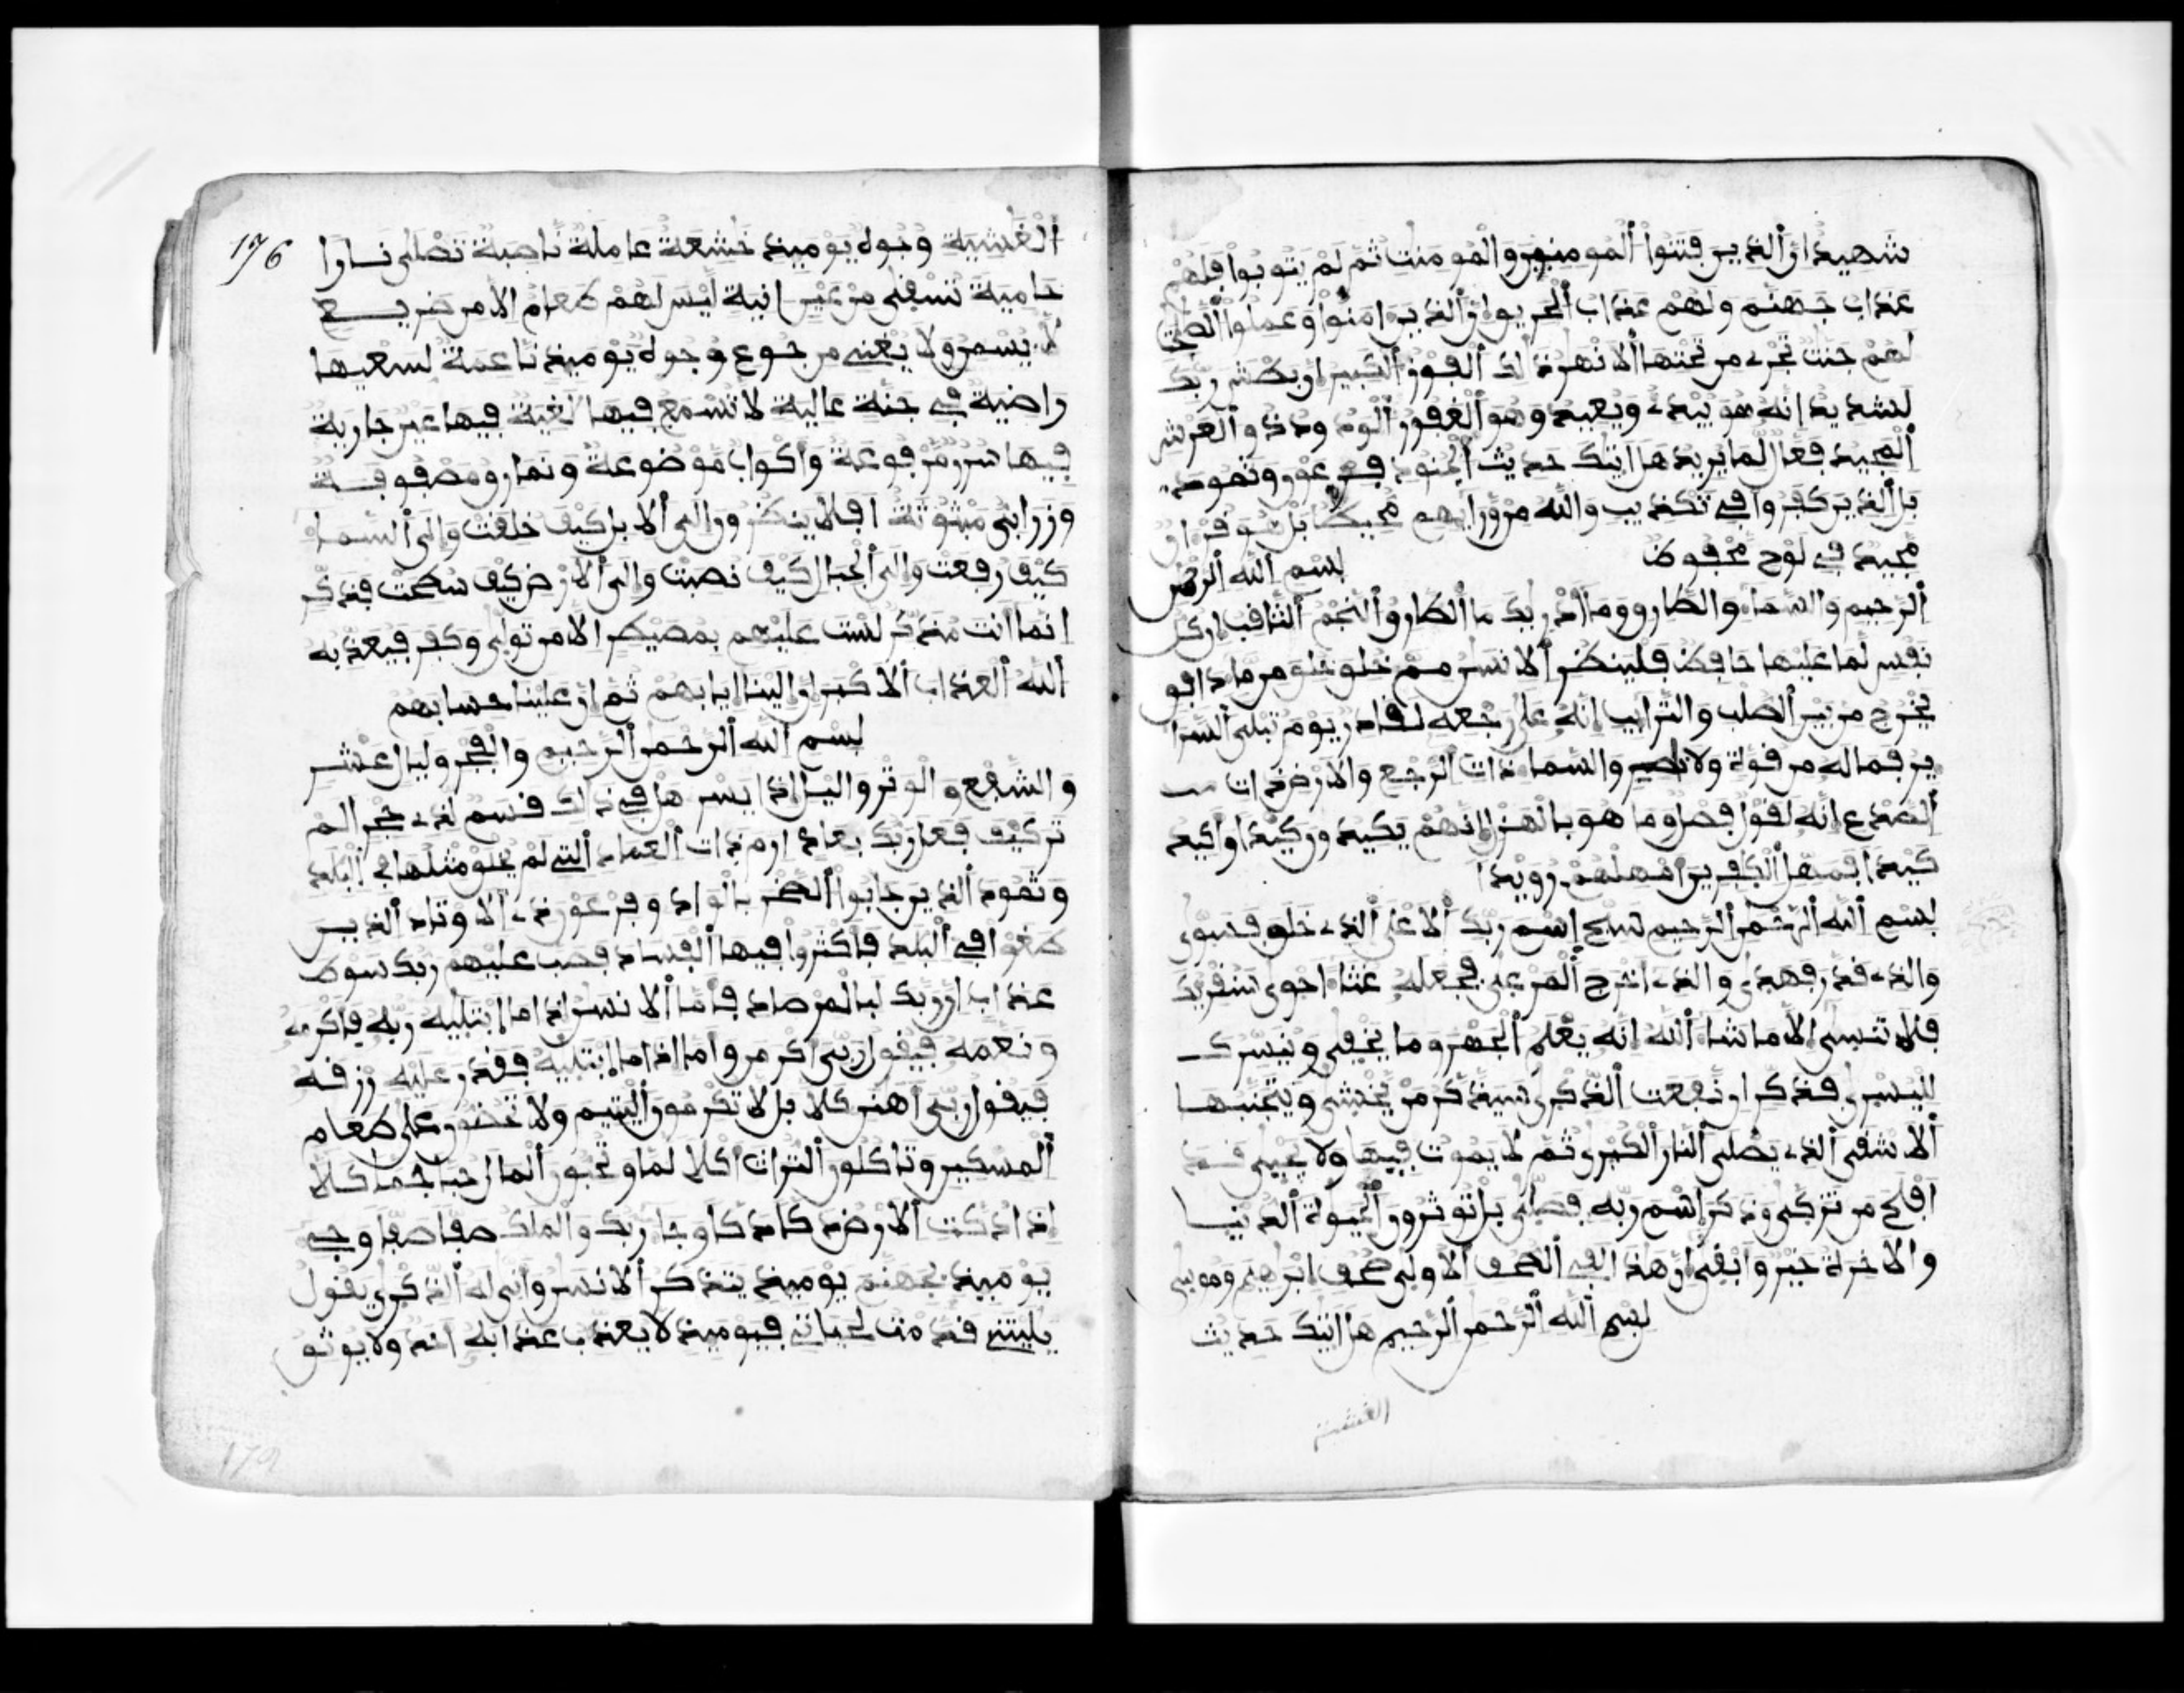 شهيد ان الذين فتنوا المومنين والمومنت ثم لم يتوبوا فلهم
عذاب جهنم ولهم عذاب الحريق ان الذين امنوا وعملوا الصلحت
لهم جنت تجرے من تحتها الانهر ذلك الفوز الكبير ان بطش ربك
لشديد انه هو يبدے ويعيد وهو الغفور الودود ذو العرش
المجيد فعال لما يريد هل اتيك حديث الجنود فرعون وثمود
بل الذين كفروا في تكذيب والله من ورايهم محيط بل هو قران
مجيد في لوح محفوظ بسم الله الرحمن
الرحيم والسما والطارق وما ادريك ما الطارق النجم الثاقب ان كل
نفس لما عليها حافظ فلينظر الانسن مم خلق خلق من ما دافق
يخرج من بين الصلب والترايب انه على رجعه لقادر يوم تبلى السرا
ير فما له من قوة ولا ناصر والسما ذات الرجع والارض ذات
الصدع انه لقول فصل وما هو بالهزل انهم يكيدون كيدا واكيد
كيدا فمهل الكفرين امهلهم رويدا
بسم الله الرحمن الرحيم سبح اسم ربك الاعلى الذے خلق فسوى
والذے قدر فهدى والذے اخرج المرعى فجعله غثا احوى سنقريك
فلا تنسى الا ما شا الله انه يعلم الجهر وما يخفى ونيسرك
لليسرى فذكر ان نفعت الذكرى سيذكر من يخشى ويتجنبها
الاشقى الذے يصلى النار الكبرى ثم لا يموت فيها ولا يحيى قد
افلح من تزكى وذكر اسم ربه فصلى بل توثرون الحيوة الدنيا
والاخرة خير وابقى ان هذا لفي الصحف الاولى صحف ابرهيم وموسى
بسم الله الرحمن الرحيم هل اتيك حديث
الغشية
176
الغشية وجوه يوميذ خشعة عاملة ناصبة تصلى نارا
حامية تسقى من عين انية ليس لهم طعام الا من ضريع
لا يسمن ولا يغنى من جوع وجوه يوميذ ناعمة لسعيها
راضية في جنة عالية لا تسمع فيها لغية فيها عين جارية
فيها سرر مرفوعة واكواب موضوعة ونمارق مصفوفة
وزرابى مبثوثة افلا ينظرون الى الابل كيف خلقت والى السما
كيف رفعت والى الجبال كيف نصبت والى الارض كيف سطحت فذكر
انما انت مذكر لست عليهم بمصيطر الا من تولى وكفر فيعذبه
الله العذاب الاكبر ان الينا ايابهم ثم ان علينا حسابهم
بسم الله الرحمن الرحيم والفجر وليال عشر
والشفع والوتر واليل اذا يسر هل في ذلك قسم لذے حجر الم
تر كيف فعل ربك بعاد ارم ذات العماد التي لم يخلق مثلها في البلد
وثمود الذين جابوا الصخر بالواد وفرعون ذے الاوتاد الذين
طغوا في البلد فاكثروا فيها الفساد فصب عليهم ربك سوط
عذاب ان ربك لبالمرصاد فاما الانسن اذا ما ابتليه ربه فاكرمه
ونعمه فيقول ربى اكرمن واما اذا ما ابتليه فقدر عليه رزقه
فيقول ربى اهنن كلا بل لا تكرمون اليتيم ولا تحضون على طعام
المسكين وتاكلون التراث اكلا لما وتحبون المال حبا جما كلا
اذا دكت الارض دكا دكا وجا ربك والملك صفا صفا وجے
يوميذ بجهنم يوميذ يتذكر الانسن وانى له الذكرى يقول
يليتنے قدمت لحياتے فيوميذ لا يعذب عذابه احد ولا يوثق